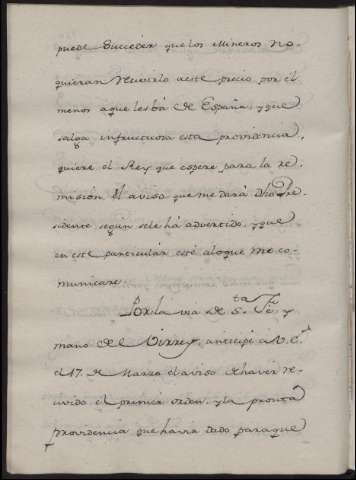 puede succeder que los Mineros no
quieran recivirlo a este precio por el
menos a que les bá de España, y que
salga infructuosa esta providencia,
quiere el Rey que espere para la re
mision el aviso que me dará dho Pre
sidente según se le há advertido, y que
en este particular esté a lo que me co
municare.
Por la via de S.ta Fé, y
mano de el Virrey, anticipé a V.E.
el 17. de Marzo el aviso de haver re
civido el primer orden, y la pronta
providencia que havia dado para que